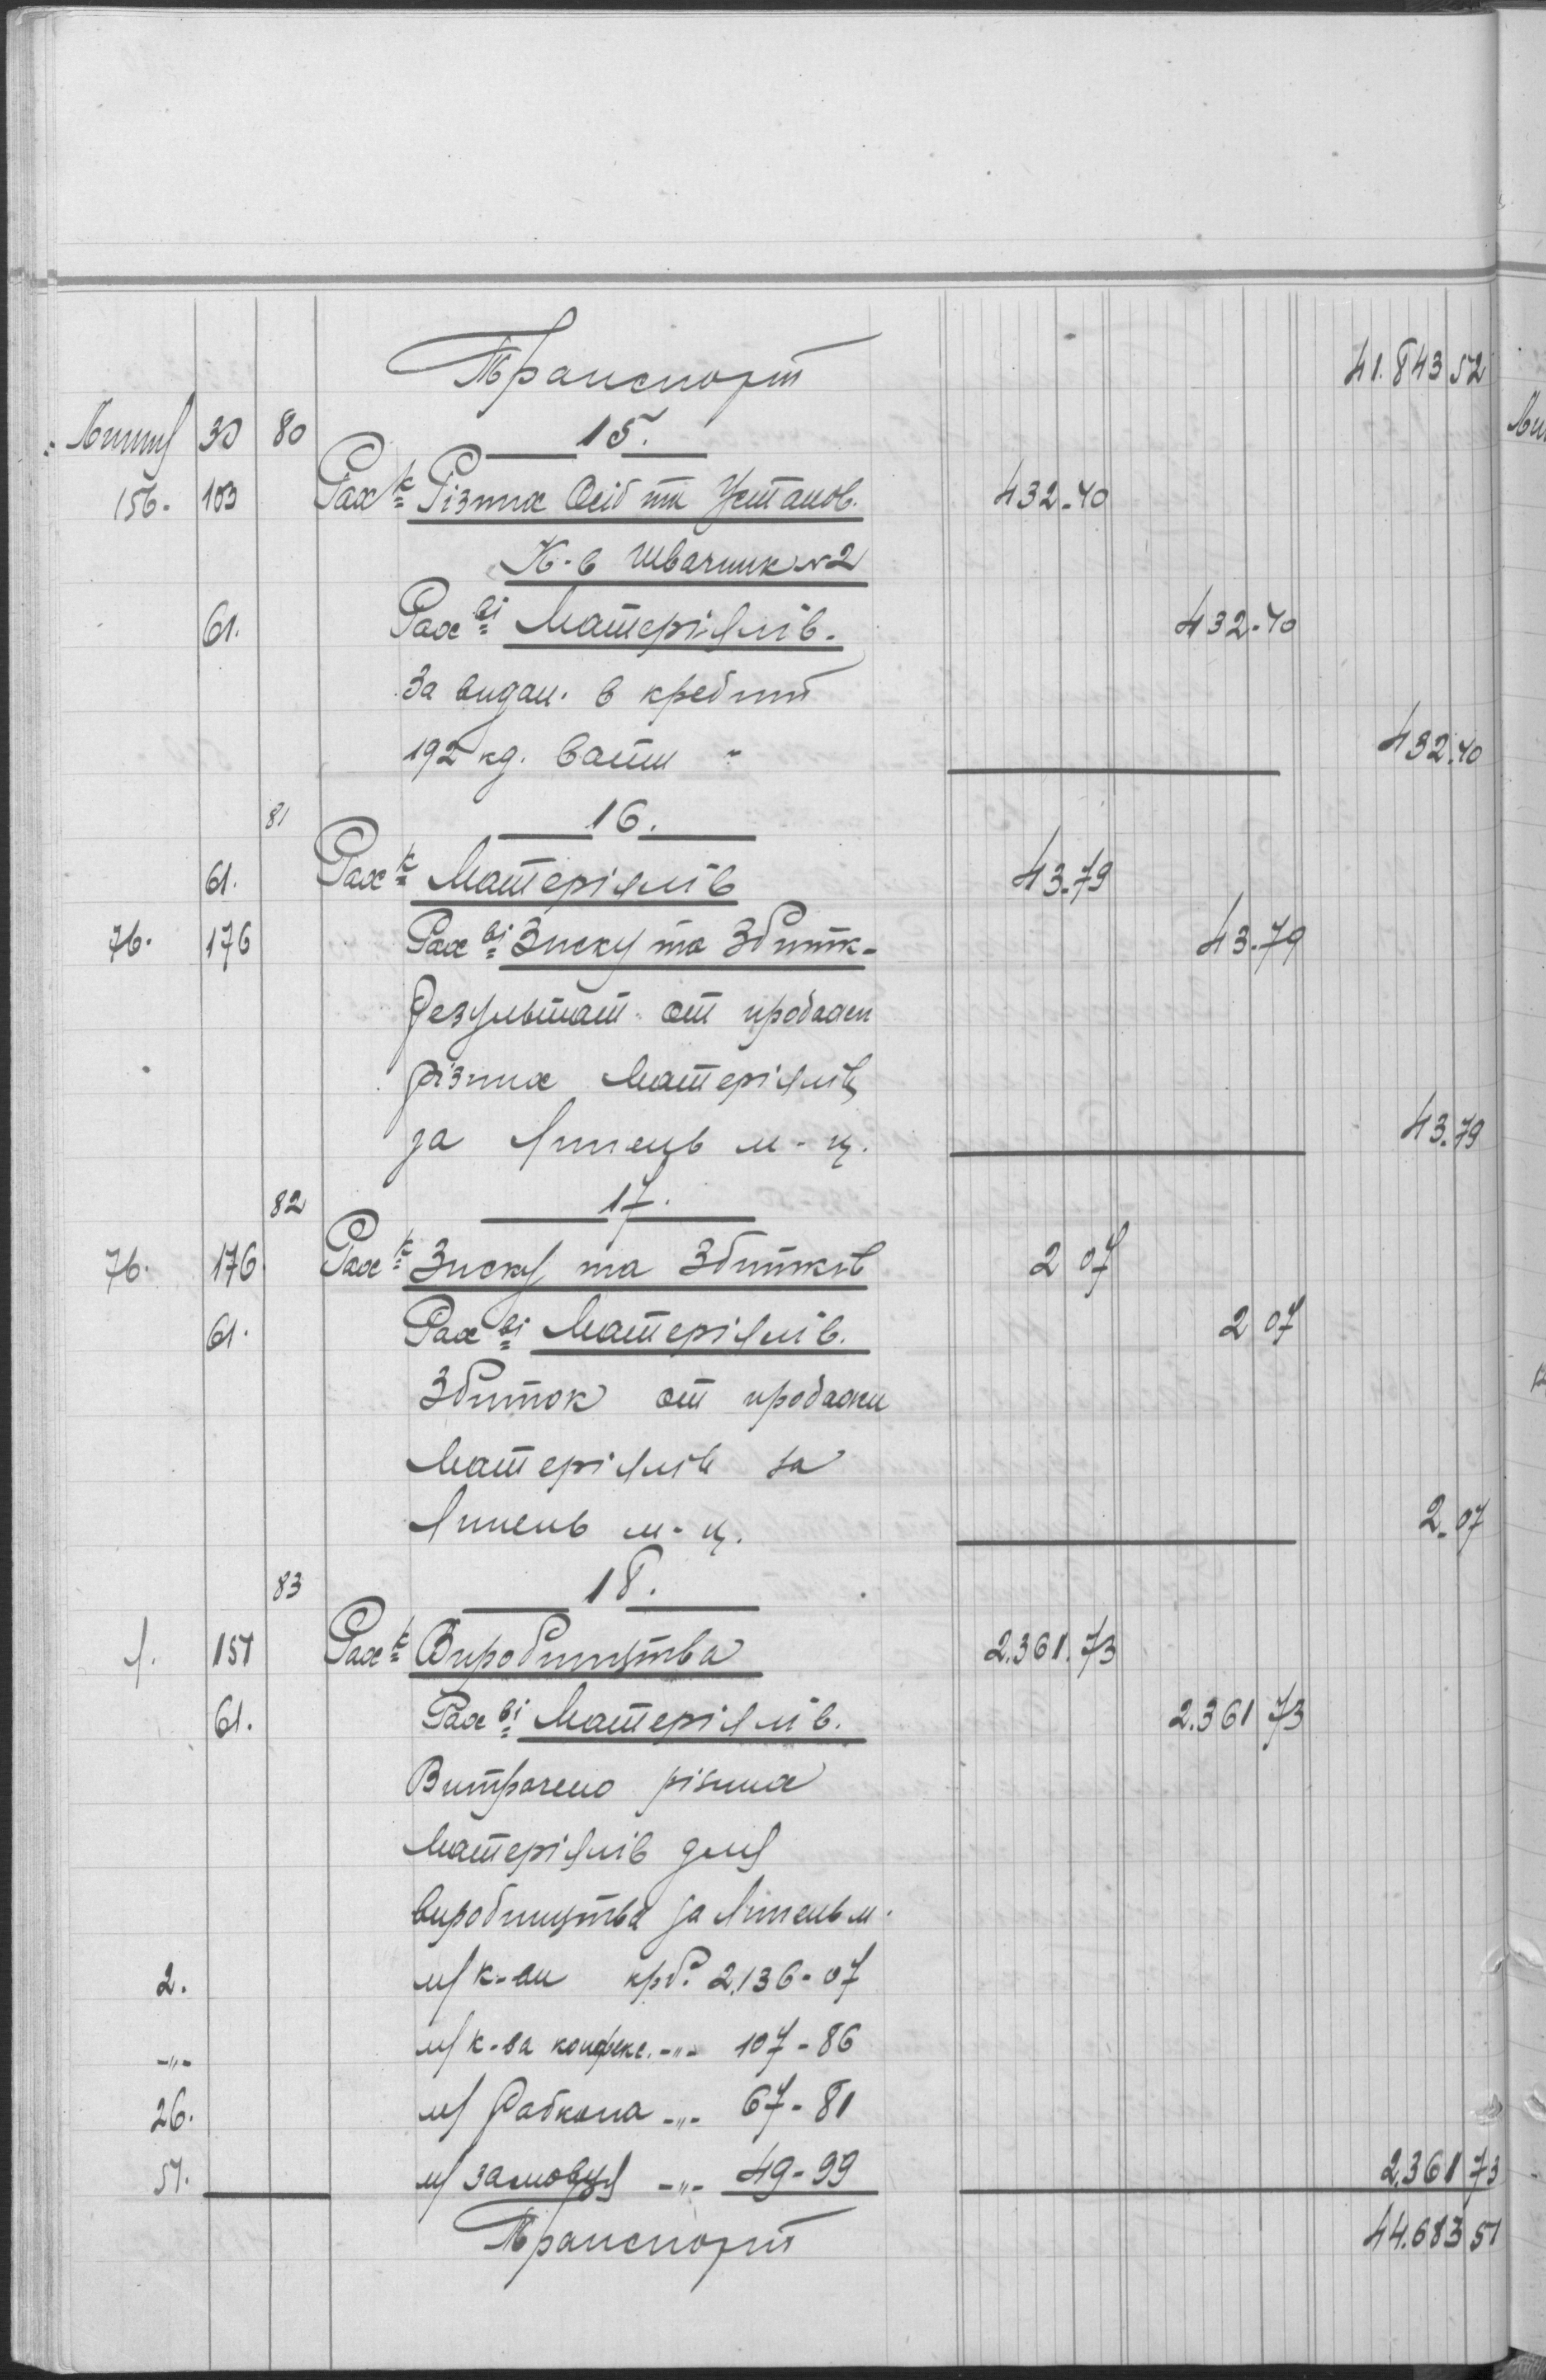 Транспорт 41.843 52
Липня 30 80 15.
156. 103 Рах-к Різних Осіб та Установ. 432-40
К-в Швачник №2
61. Рах-ві Матеріялів. 432-40
За видан. в кредит
192 кг. вати - 432.40
81 16.
61. Рах-к Матеріялів 43-79
76. 176 Рах-ві Зиску та Збитк- 43-79
Результат от продажи
різних матеріялів
за Липець м-ц. 43-79
82 17.
76. 176 Рах-к Зиску та Збитків 2 07
61. Рах-ві Матеріялів. 2 07
Збиток от продажи
матеріялів за
Липень м-ц. 2-07
83 18.
1. 151 Рах-к Виробництва 2.361.73
61. Рах-ві Матеріялів. 2.361 73
Витрачено різних
матеріялів для
виробництва за Липень м.
2. м/к-ви крб. 2.136-07
-"- м/к-ва конфекс. -"- 107-86
26. м/Рабкопа -"- 67-81
51. м/замовця -"- 49-99 2.361 73
Транспорт 44.683 51